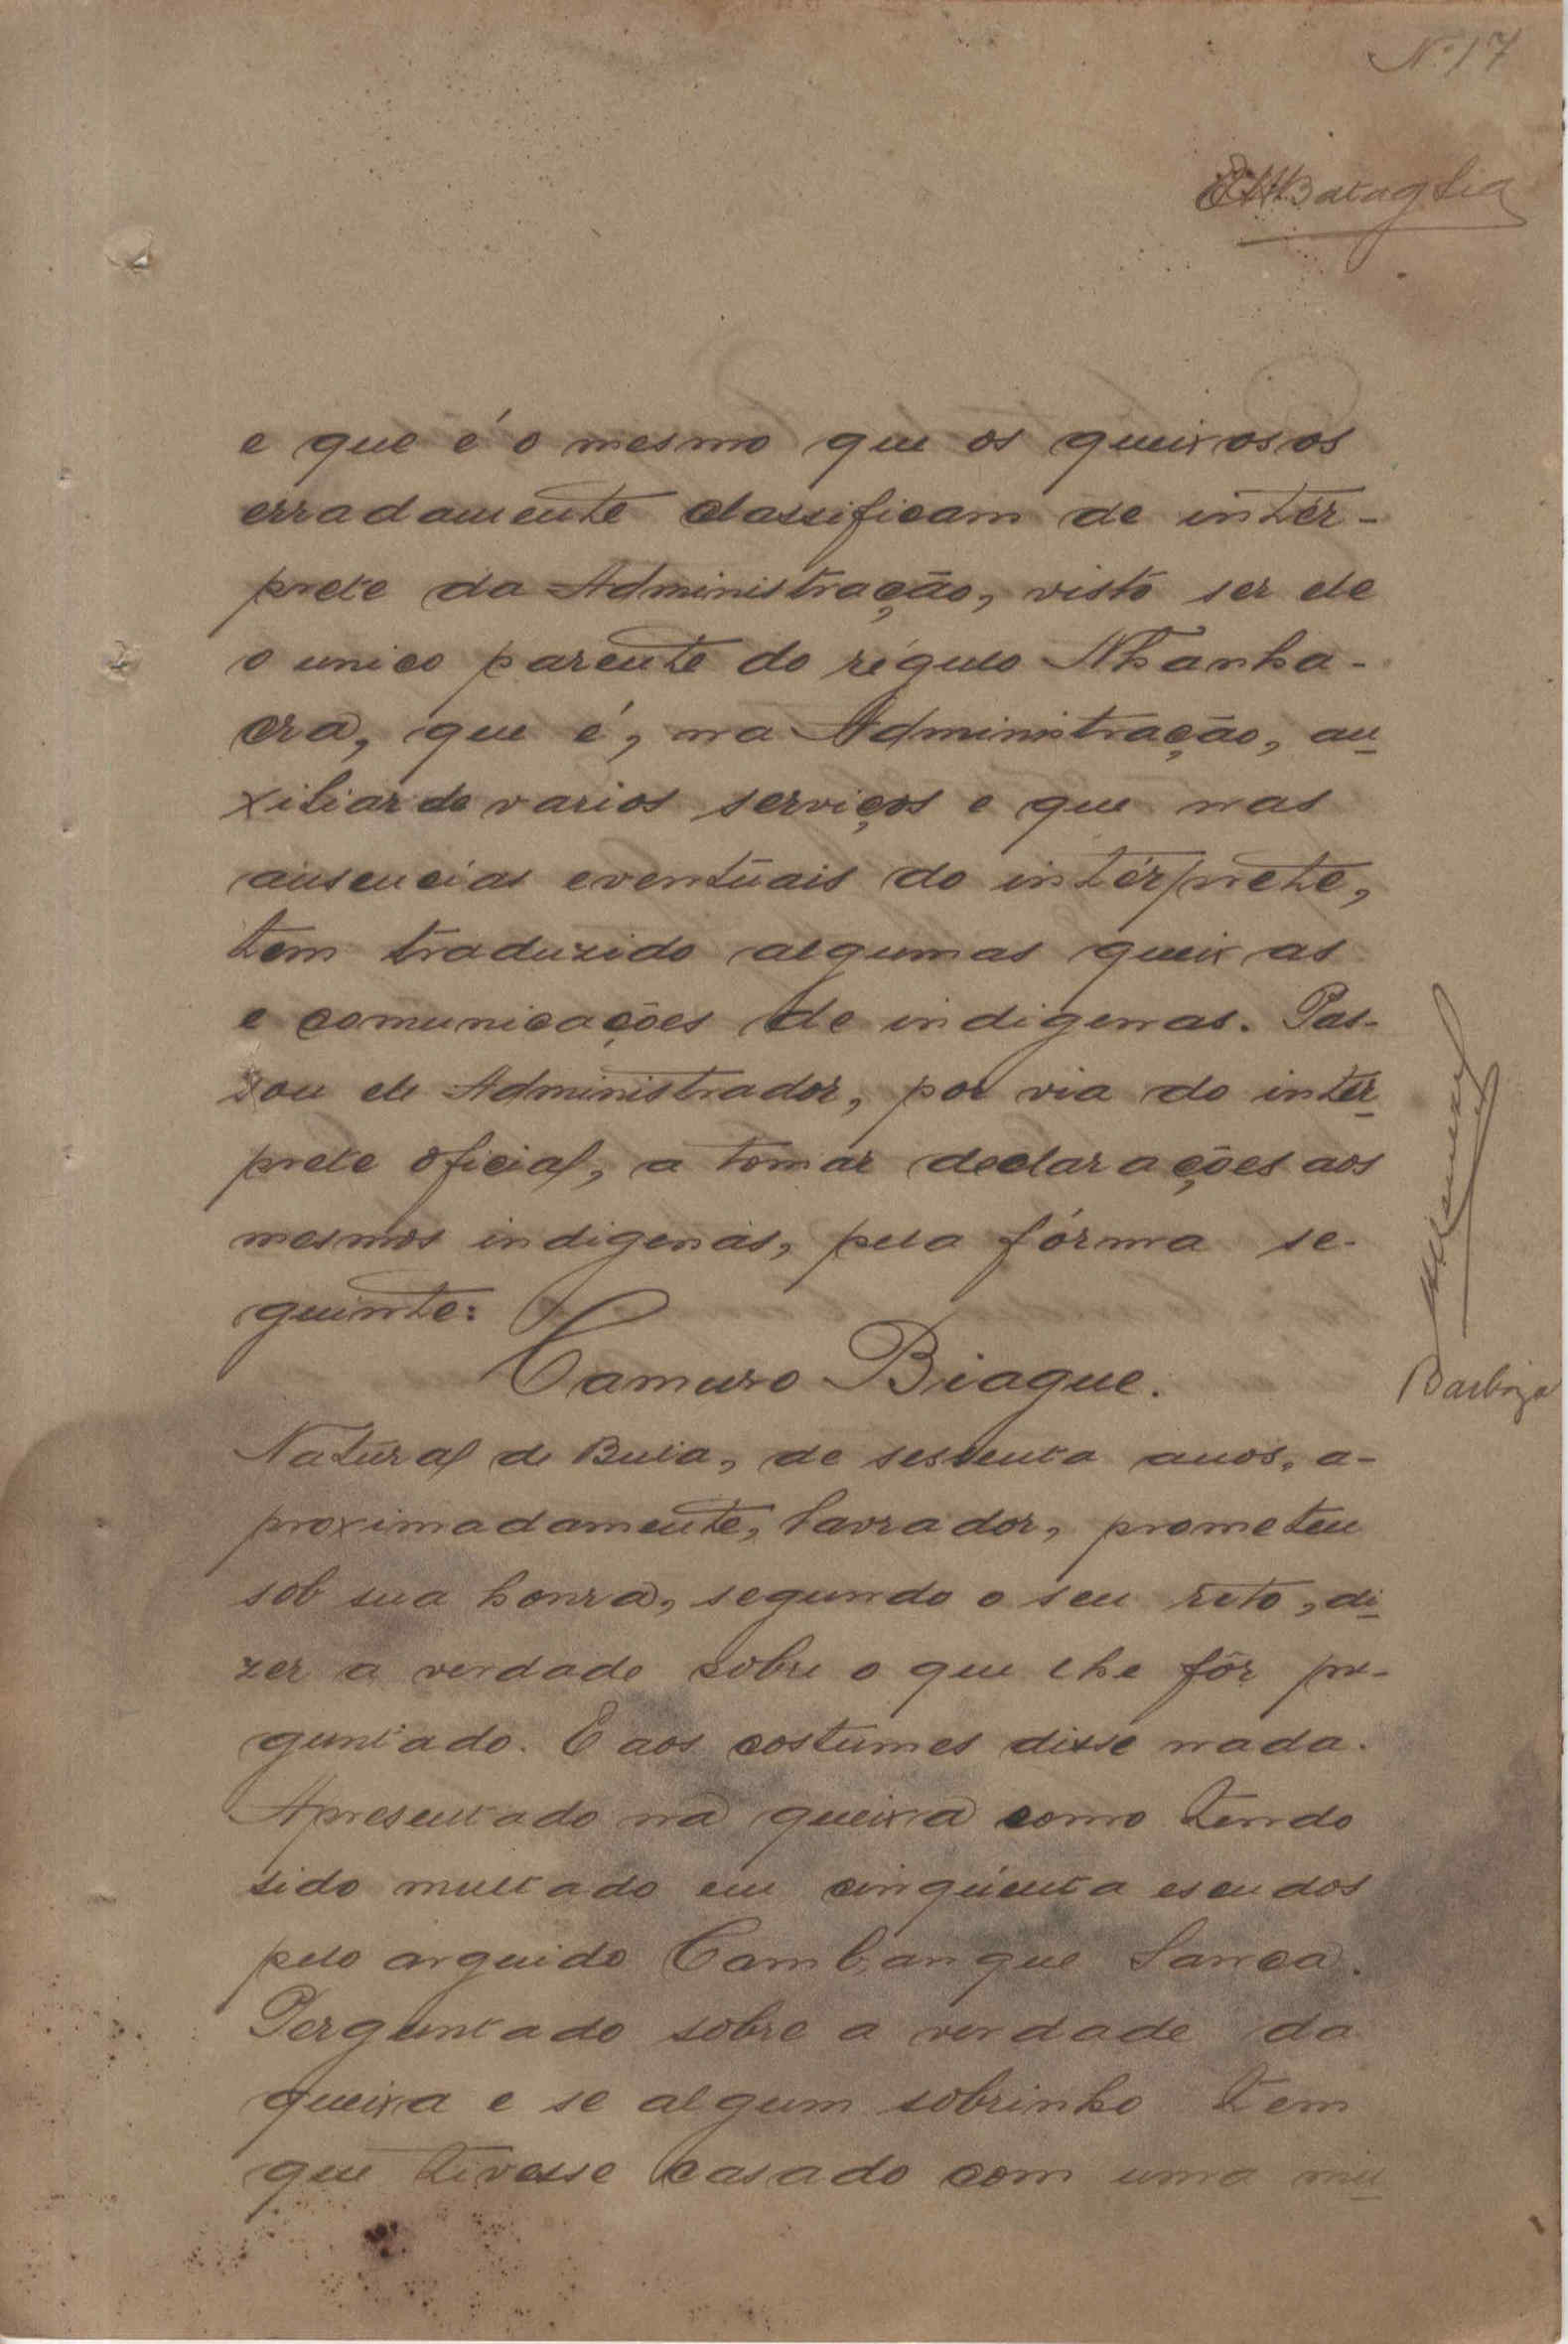 Nº 17
Bataglia
e que é o mesmo que os queixosos
erradamente classificam de intér-
prete da Administração, visto ser ele
o unico parente do régulo Nhanha-
cra, que é, na Administração, au
xiliar de varios serviços e que nas
ausencias eventuais do intérprete,
tem traduzido algumas queixas
e comunicações de indigenas. Pas-
sou ele Administrador, por via do intér
prete oficial, a tomar declarações aos
mesmos indigenas, pela fórma se-
guinte:
Camuro Biague.
Natural de Bula, de sessenta anos, a-
proximadamente, lavrador, prometeu
sob sua honra, segundo o seu rito, di
zer a verdade sobre o que lhe fôr pr-
guntado. E aos costumes disse nada.
Apresentado na queixa como tendo
sido multado em cinqüenta escudos
pelo arguido Cambanque Sanca.
Perguntado sobre a verdade da
queixa e se algum sobrinho tem
que tivesse casado com uma mu
Barboza